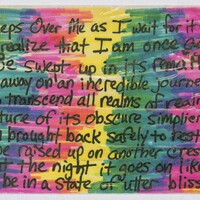 eps Over Me as I wait for it
realize that I am once
Be swept up in its
away on an incredible journe
transcend all realms of
ture of its obscure simplici
brought back safely to rest
be raised up on another crest
t the night it goes on like
be in a state of utter bliss